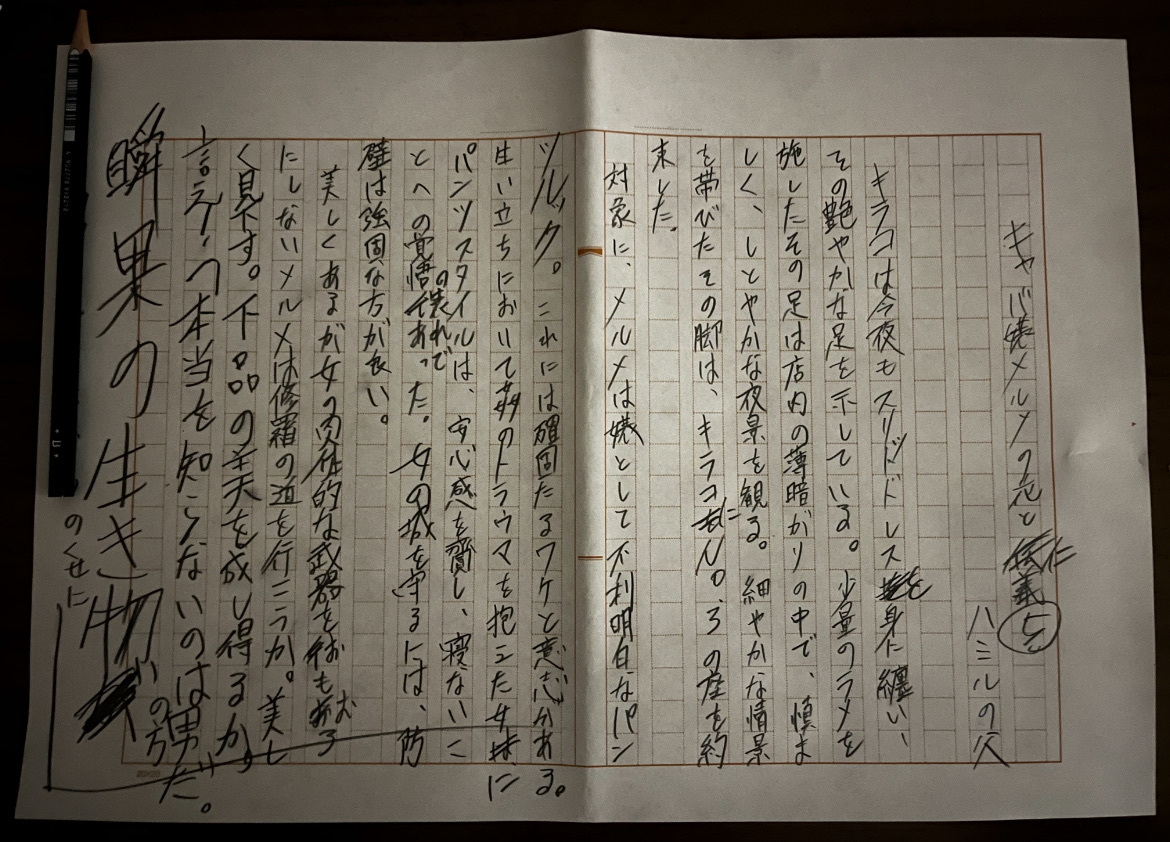 キャバ嬢メルメの花と仁義⑤
ハミルの父
キラコは今夜もスリッドドレスを身に纏い、
その艶やかな足を示している。少量のラメを
施したその足は店内の薄暗がりの中で、慎ま
しく、しとやかな夜景を観る。細やかな情景
を帯びたその脚は、キラコにNo.3の座を約
束した。
対象に、メルメは嬢として不利明白なパン
ツルック。これには確固たるワケと意志がある。
生い立ちにおいて姦のトラウマを抱えた女に
パンツスタイルは、安心感を齎し、寝ないこ
とへの覚悟の表れであった。女の城を守るには、防
壁は強固な方が良い。
美しくあるが女の肉体的な武器を
にしないメルメは修羅の道を行こうか。美し
く見下す。下品の美を成し得るか。
言えつ本当を知らないのは男の方だ。
瞬果の生き物
のくせに